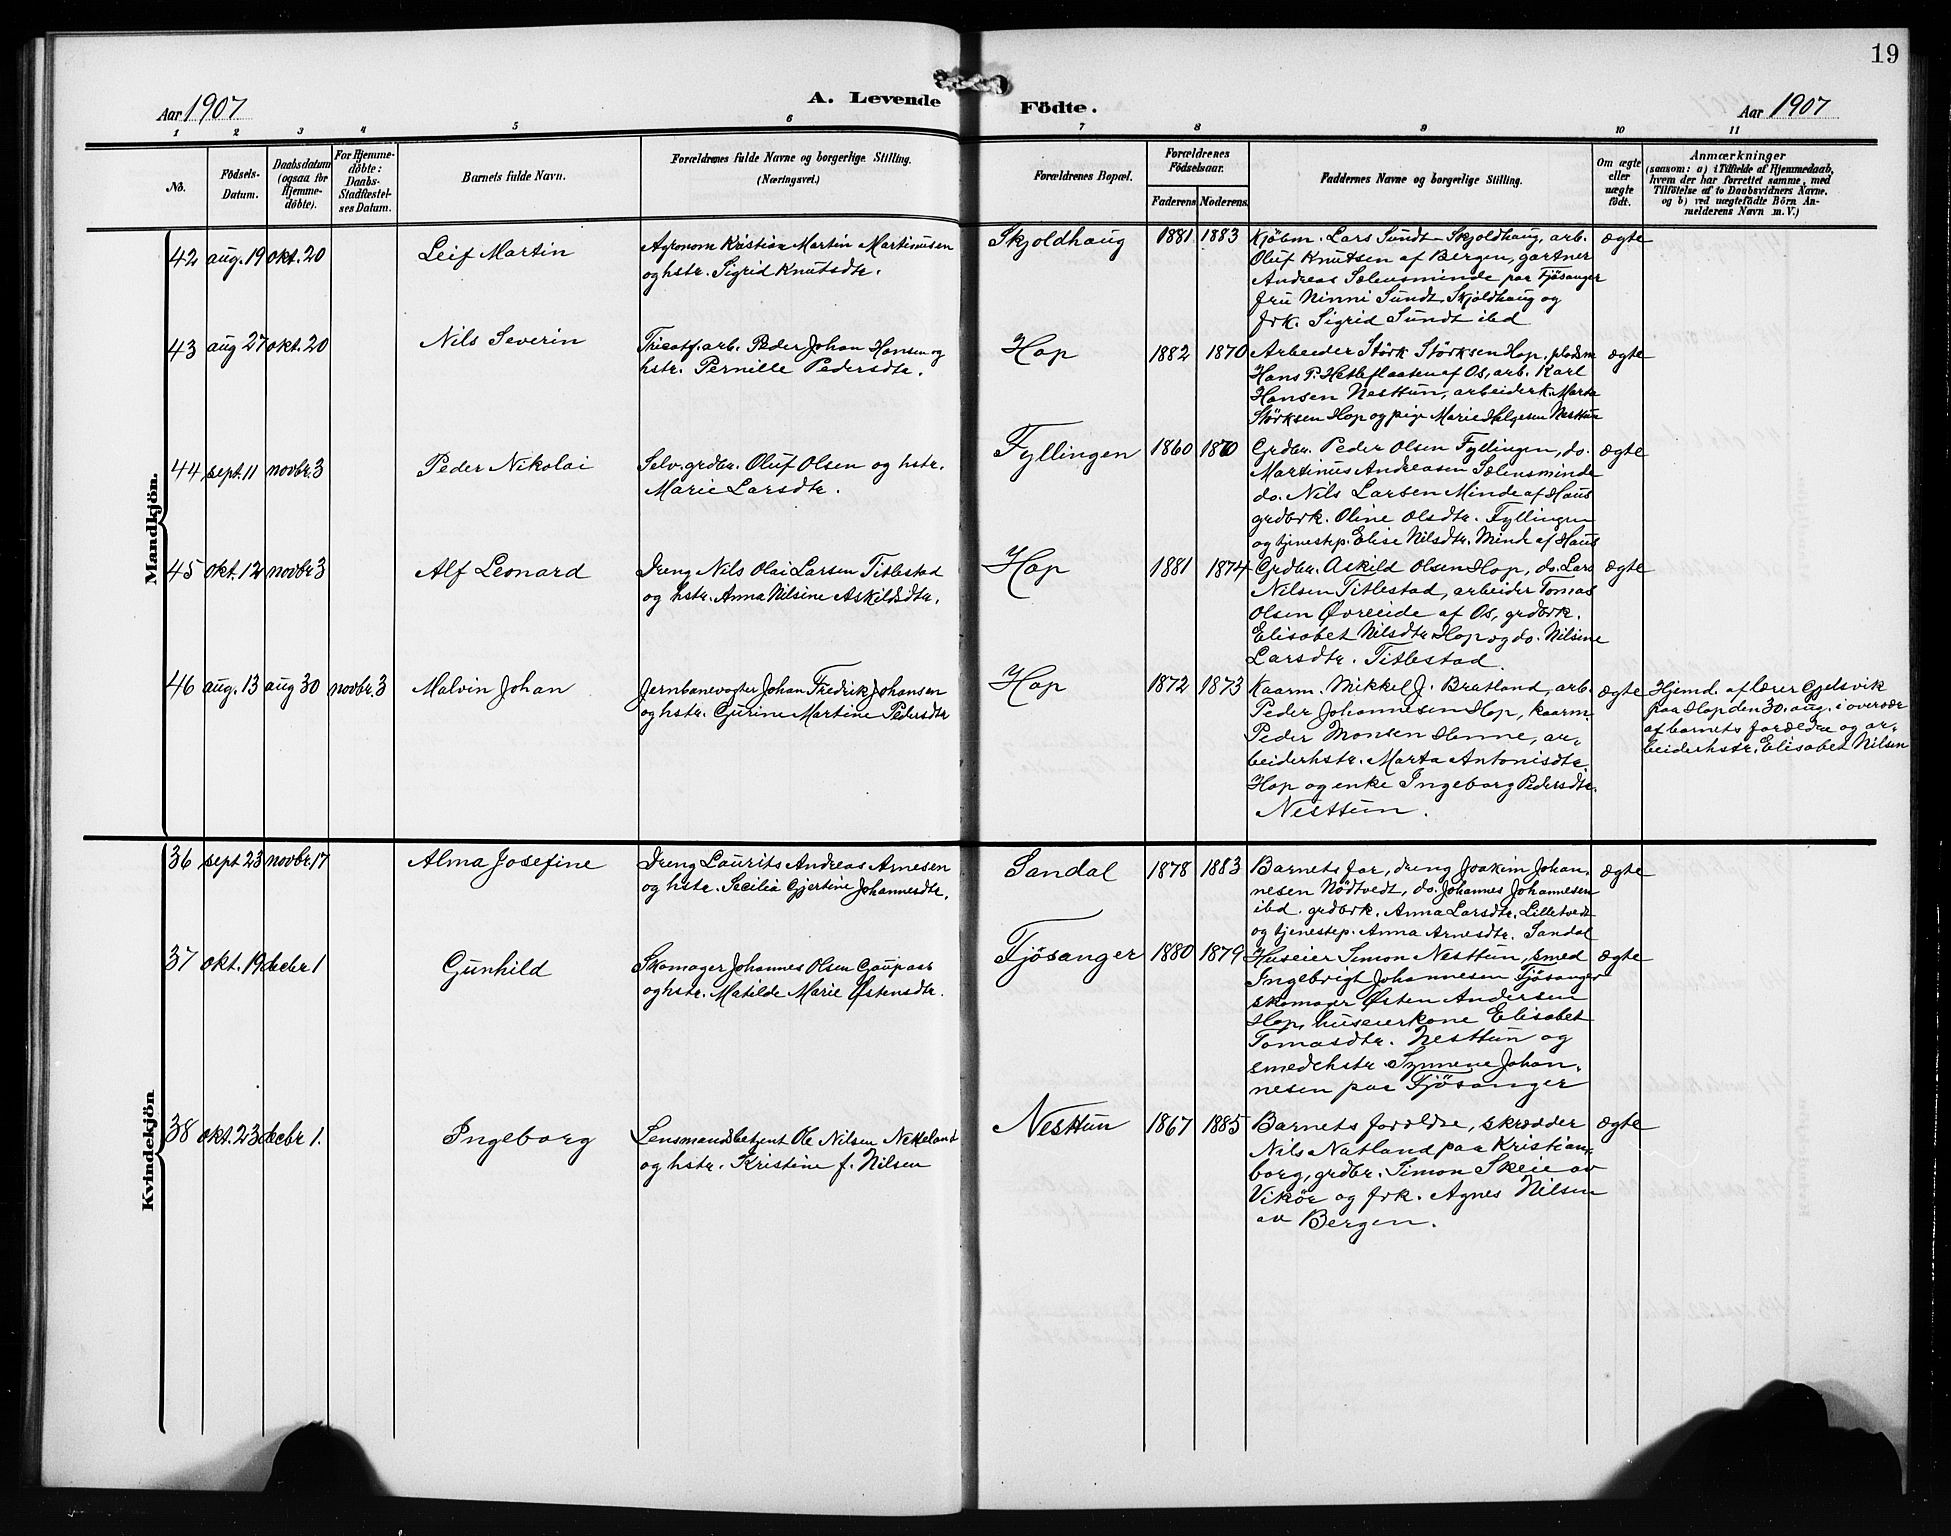 19
Aar 1907
A. Levende
Födte.
Aar 1907
1 2 3 4 5 6 7 8 9 10 11
No.
Födsels-
Datum.
Daabsdatum
(ogsaa for
Hjemme-
döbte).
For Hjemme-
döbte:
Daabs-
Stadfæstel-
ses Datum.
Barnets fulde Navn.
Forældrenes fulde Navne og borgerlige Stilling.
(Næringsvei.)
Forældrenes Bopæl.
Forældrenes
Födselsaar.
Faderens
Moderens.
Faddernes Navne og borgerlige Stilling.
Om ægte
eller
uægte
födt.
Anmærkninger
(saasom: a) i Tilfælde af Hjemmedaab,
hvem der har forrettet samme, med
Tilföielse af to Daabsvidners Navne.
og b) ved uægtefödte Börn An-
melderens Navn m.V.)
Mandkjön.
42 aug. 19 okt. 20
Leif Martin
Agronom Kristian Martin Martinusen
og hstr. Sigrid Knutsdtr.
Skjoldhaug
1881 1883
Kjöbm. Lars Sundt Skjoldhaug, arb.
Oluf Knutsen af Bergen, gartner
Andreas Sælensminde paa Fjösanger
fru Ninni Sundt Skjoldhaug og
frk. Sigrid Sundt ibd
ægte
43 aug 27 okt. 20
Nils Severin
Tricotf.arb. Peder Johan Hansen og
hstr. Pernille Pedersdtr.
Hop
1882 1870
Arbeider Störk Störksen Hop, pladsm
Hans P. Hetleflaaten af Os, arb. Karl
Hansen Nesttun, arbeiderk. Marta
Störksen Hop og pige Marie Helgesen Nesttun
ægte
44 sept. 11 novbr. 3
Peder Nikolai
Selv.grdbr. Oluf Olsen og hstr.
Marie Larsdtr.
Fyllingen
1860 1870
Grdbr. Peder Olsen Fyllingen, do.
Martinus Andreasen Sælensminde
do. Nils Larsen Minde af Haus
grdbrk. Oline Olsdtr. Fyllingen
og tjenestep. Elise Nilsdtr. Minde af Haus
ægte
45 okt. 12 novbr 3
Alf Leonard
Dreng Nils Olai Larsen Titlestad
og hstr. Anna Nilsine Askildsdtr.
Hop
1881 1874
Grdbr. Askild Olsen Hop, do. Lars
Nilsen Titlestad, arbeider Tomas
Olsen Øvreeide af Os, grdbrk.
Elisabet Nilsdtr. Hop og do. Nilsine
Larsdtr. Titlestad.
ægte
46 aug. 13 aug 30 novbr. 3
Malvin Johan
Jernbanevogter Johan Fredrik Johansen
og hstr. Gurine Martine Pedersdtr
Hop
1872 1873
Kaarm. Mikkel J. Bratland, arb.
Peder Johannesen Hop, kaarm.
Peder Monsen Henne, ar-
beiderhstr. Marta Antonisdtr.
Hop og enke Ingeborg Pedersdtr.
Nesttun.
ægte
Hjemd. af lærer Gjelsvik
paa Hop den 30. aug. i overvær
af barnets forældre og ar-
beiderhstr. Elisabet Nilsen
Kvindekjön
36 sept 23 novbr. 17
Alma Josefine
Dreng Laurits Andreas Arnesen
og hstr. Secilia Gjertine Johannesdtr.
Sandal
1878 1883
Barnets far, dreng Joakim Johan-
nesen Nödtvedt, do. Johannes Johannesen
ibd. grdbrk. Anna Larsdtr. Lilletvedt
og tjenestep. Anna Arnesdtr. Sandal
ægte
37 okt. 19 decbr 1
Gunhild
Skomager Johannes Olsen Gaupaas
og hstr. Matilde Marie Østensdtr.
Fjösanger
1880 1879
Huseier Simon Nesttun, smed
Ingebrigt Johannesen Fjösanger
skomager Østen Andersen
Hop, huseierkone Elisabet
Tomasdtr. Nesttun og
smedehstr Synneve Johan-
nesen paa Fjösanger
ægte
38 okt. 23 decbr 1.
Ingeborg
Lensmandsbetjent Ole Nilsen Netteland
og hstr. Kristine f. Nilsen
Nesttun
1867 1885
Barnets forældre, skrædder
Nils Natland paa Kristian-
borg, grdbr. Simon Skeie av
Vikör og frk. Agnes Nilsen
av Bergen.
ægte